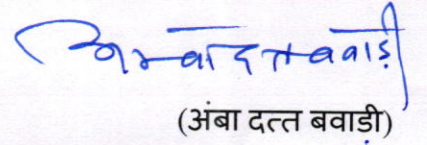 अम्बादत्त बवाड़ी
(अंबा दत्त बवाडी)